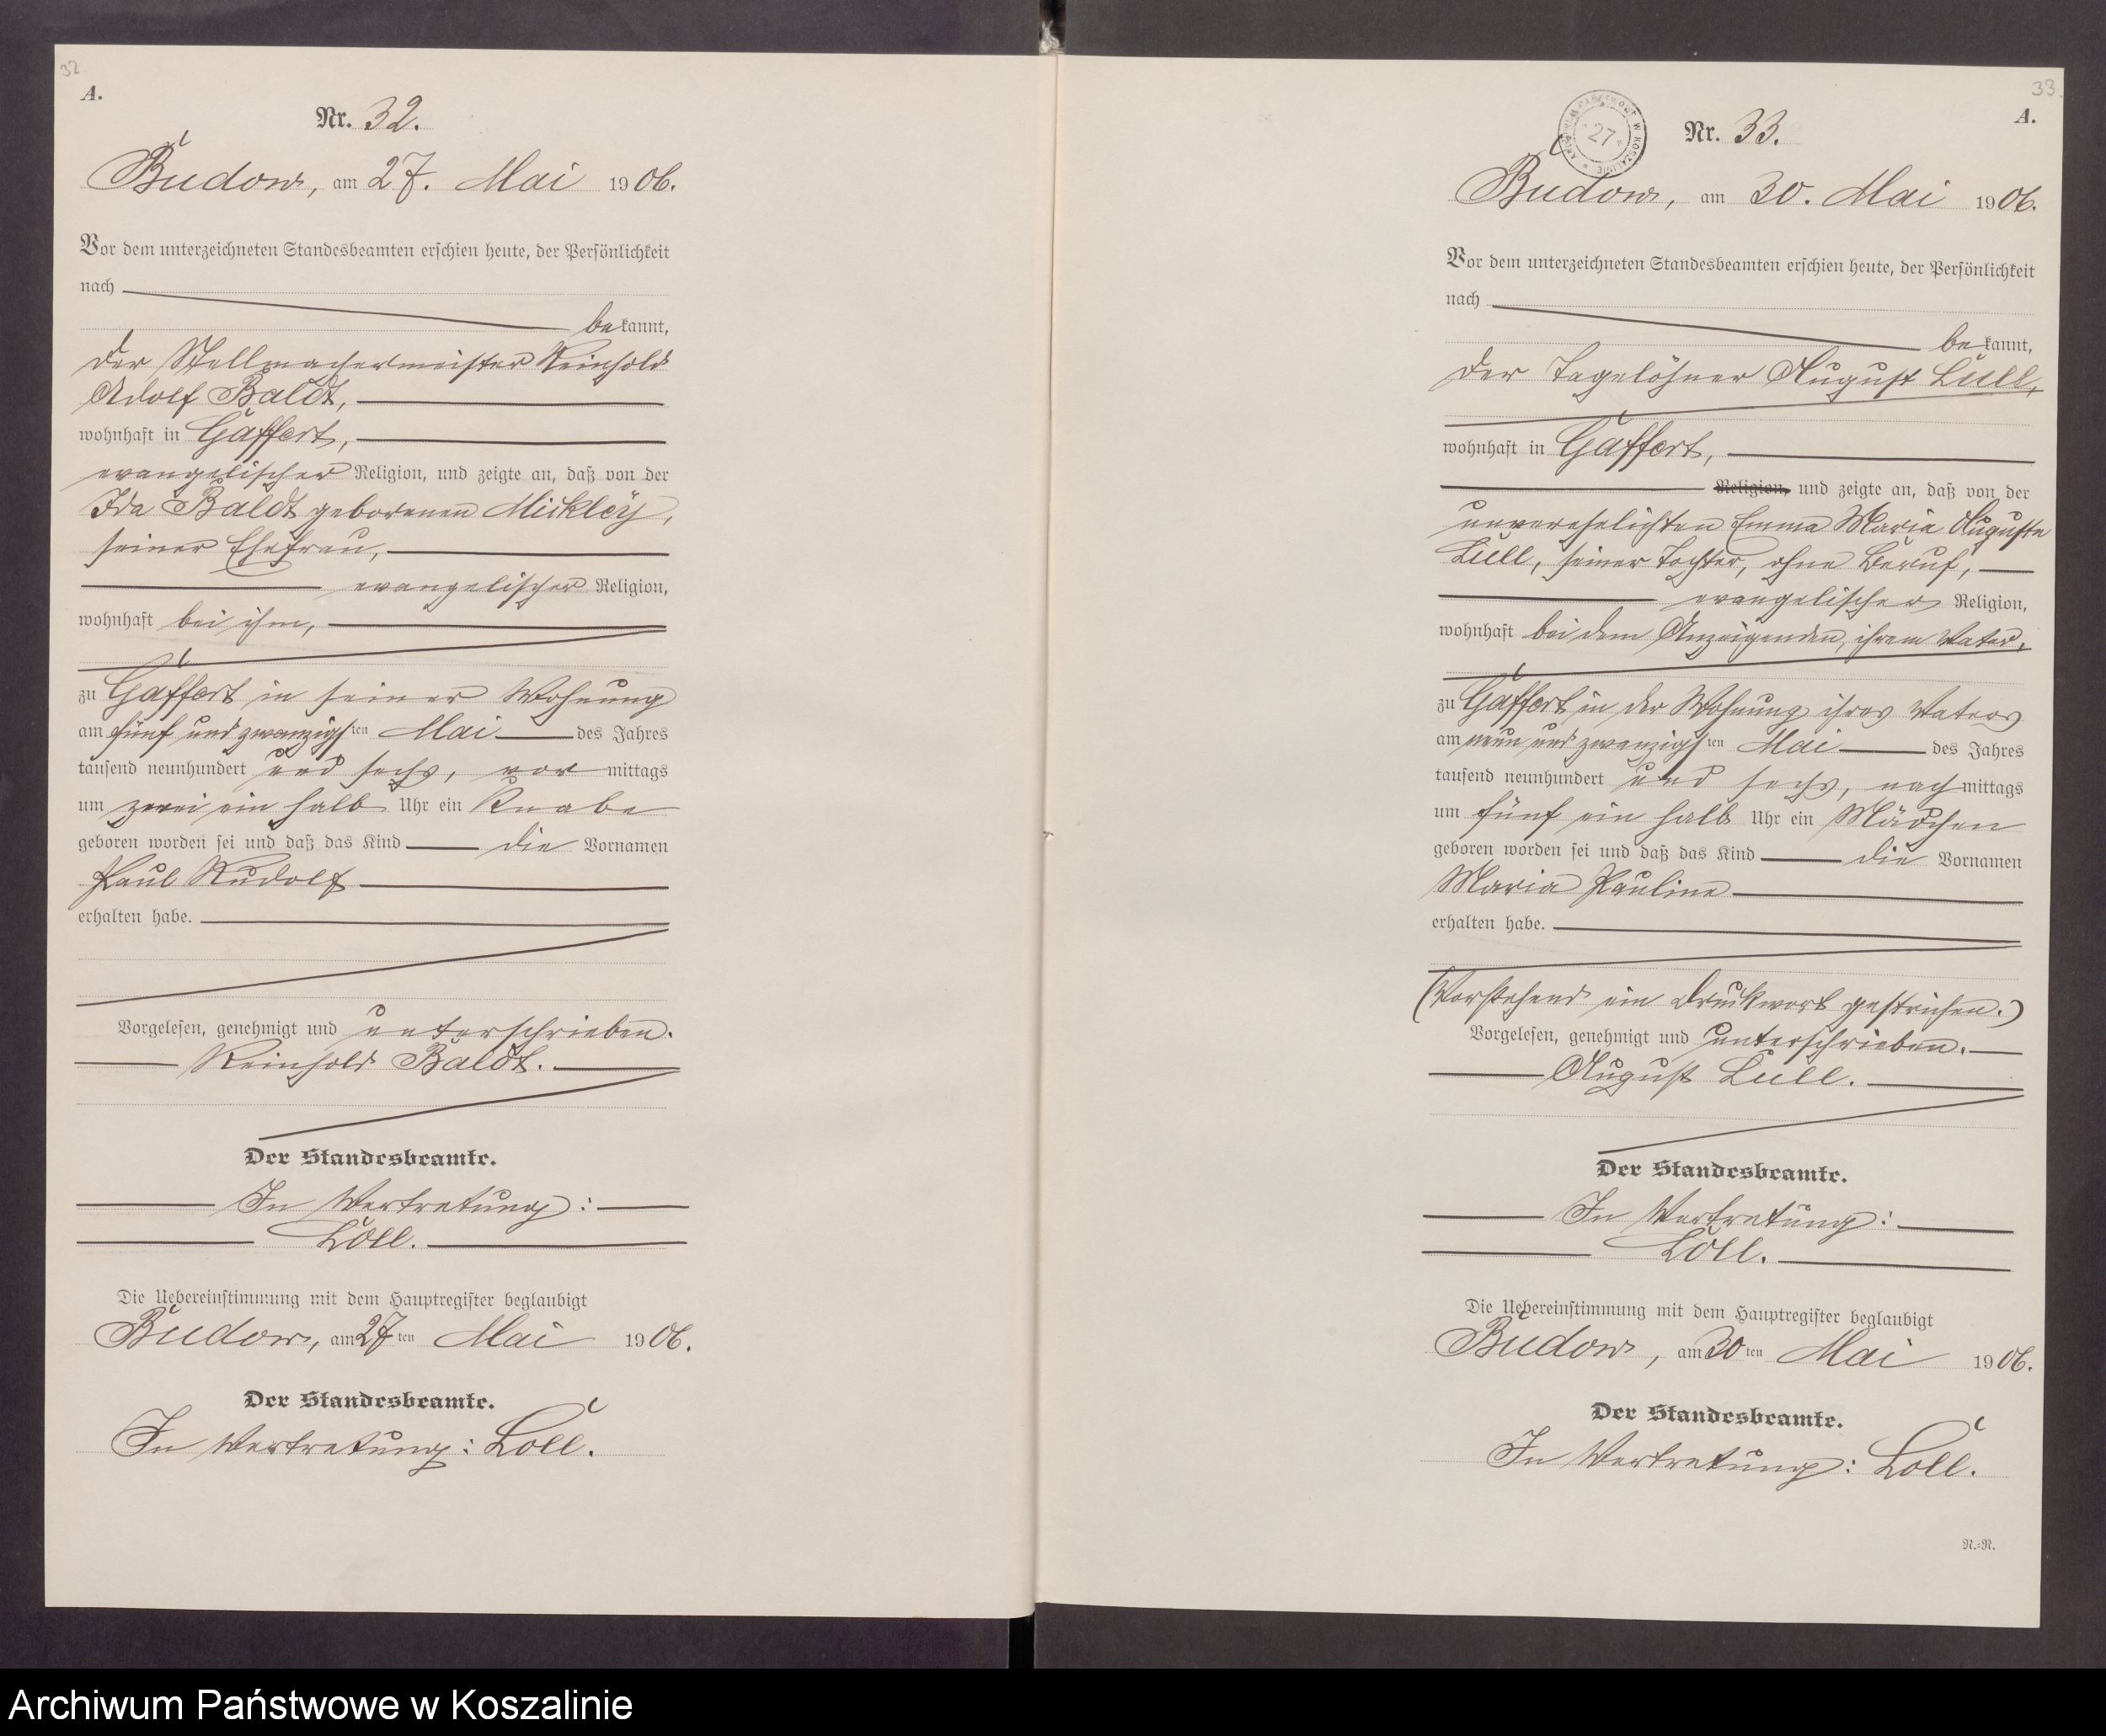 32
A.
Nr. 32.
Budow, am 27. Mai 1906.
Vor dem unterzeichneten Standesbeamten erschien heute, der Persönlichkeit
nach
bekannt,
der Stellmachermeister Reinhold
Adolf Baldt,
wohnhaft in Gaffert,
evangelischer Religion, und zeigte an, daß von der
Ida Baldt geborenen Mickley,
seiner Ehefrau,
evangelischer Religion,
wohnhaft bei ihm,
zu Gaffert in seiner Wohnung
am fünf und zwanzigsten Mai des Jahres
tausend neunhundert und sechs, vormittags
um zwei ein halb Uhr ein Knabe
geboren worden sei und daß das Kind die Vornamen
Paul Rudolf
erhalten habe.
Vorgelesen, genehmigt und unterschrieben.
Reinhold Baldt.
Der Standesbeamte.
In Vertretung:
Loll.
Die Uebereinstimmung mit dem Hauptregister beglaubigt
Budow, am 27ten Mai 1906.
Der Standesbeamte.
In Vertretung: Loll.
33
A.
ARCHIWUM PAŃSTWOWE W KOSZALINIE
27
Nr. 33.
Budow, am 30. Mai 1906.
Vor dem unterzeichneten Standesbeamten erschien heute, der Persönlichkeit
nach
bekannt,
der Tagelöhner August Lull,
wohnhaft in Gaffert,
Religion, und zeigte an, daß von der
unverehelichten Emma Maria Auguste
Lull, seiner Tochter, ohne Beruf,
evangelischer Religion,
wohnhaft bei dem Anzeigenden, ihrem Vater,
zu Gaffert in der Wohnung ihres Vaters
am neun und zwanzigsten Mai des Jahres
tausend neunhundert und sechs, nachmittags
um fünf ein halb Uhr ein Mädchen
geboren worden sei und daß das Kind die Vornamen
Maria Pauline
erhalten habe.
(Vorstehend ein Druckwort gestrichen.)
Vorgelesen, genehmigt und unterschrieben.
August Lull.
Der Standesbeamte.
In Vertretung:
Loll.
Die Uebereinstimmung mit dem Hauptregister beglaubigt
Budow, am 30ten Mai 1906.
Der Standesbeamte.
In Vertretung: Loll.
N.=N.
Archiwum Państwowe w Koszalinie